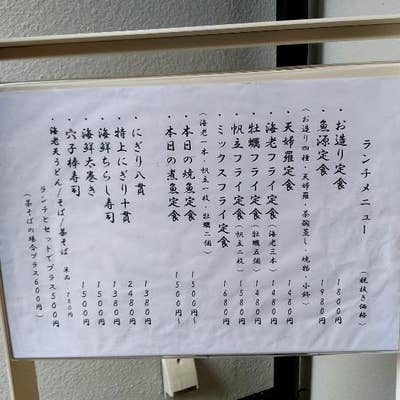 ランチメニュー (税抜き価格)
・お造り定食 1800円
・魚源定食 1980円
(お造り四種・天婦羅・茶碗蒸し・焼物・小鉢)
・天婦羅定食 1480円
・海老フライ定食(海老三本) 1480円
・牡蠣フライ定食(牡蠣五個) 1480円
・帆立フライ定食(帆立二枚) 1580円
・ミックスフライ定食 1680円
(海老一本・帆立一枚・牡蠣二個)
・本日の焼魚定食 1500円〜
・本日の煮魚定食 1500円〜
・にぎり八貫 1380円
・特上にぎり十貫 2480円
・海鮮ちらし寿司 1380円
・海鮮太巻き 1500円
・穴子棒寿司 1500円
・海老天うどん/そば/茶そば 単品 780円
ランチとセットでプラス500円
(茶そばの場合プラス600円)